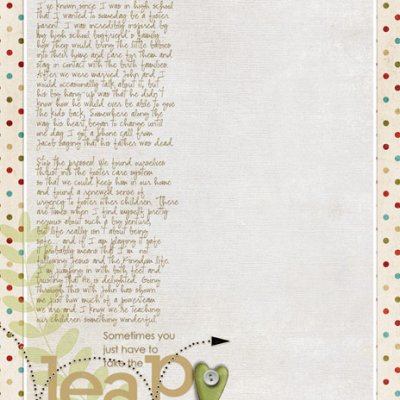 I've known since I was in high school
that I wanted to be a foster
parent. I was incredibly inspired by
my high school boyfriend's family.
how they would bring the little babies
into their home and care for them and
stay in contact with the birth families.
After we were married John and I
would occasionally talk about it, but
his big hang-up was that he didn't
know how he would ever be able to give
the kids back. Somewhere along the
way his heart began to change until
one day I got a phone call from
Jacob saying that his father was dead.
Stop the presses! We found ourselves
thrust into the foster care system
so that we could keep him in our home
and found a renewed sense of
urgency to foster other children. There
are times when I find myself pretty
nervous about such a big venture,
but life really isn't about being
safe... and if I am playing it safe
it probably means that I'm not
following Jesus and the Kingdom life.
I'm jumping in with both feet and
trusting that He is delighted. Going
through this with John has shown
me just how much of a powerteam
we are and I know we're teaching
our children something wonderful.
Sometimes you
just have to
take the
leap